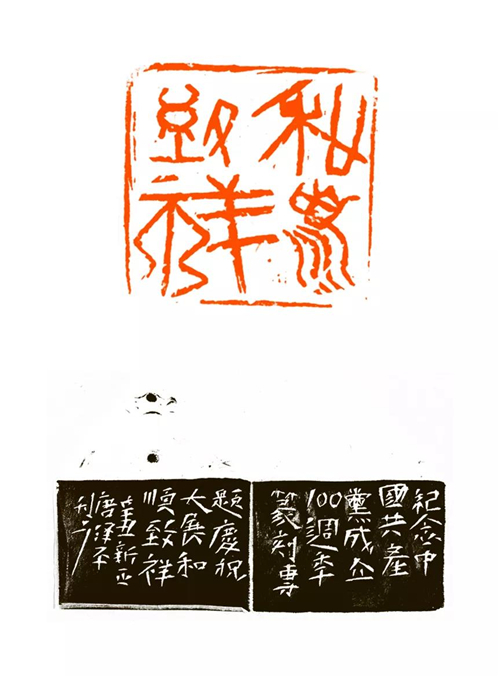 和順
致祥
紀念中
國共產
黨成立
100週年
篆刻專
題慶祝
大展和
順致祥
辛丑新正
唐澤平
刊